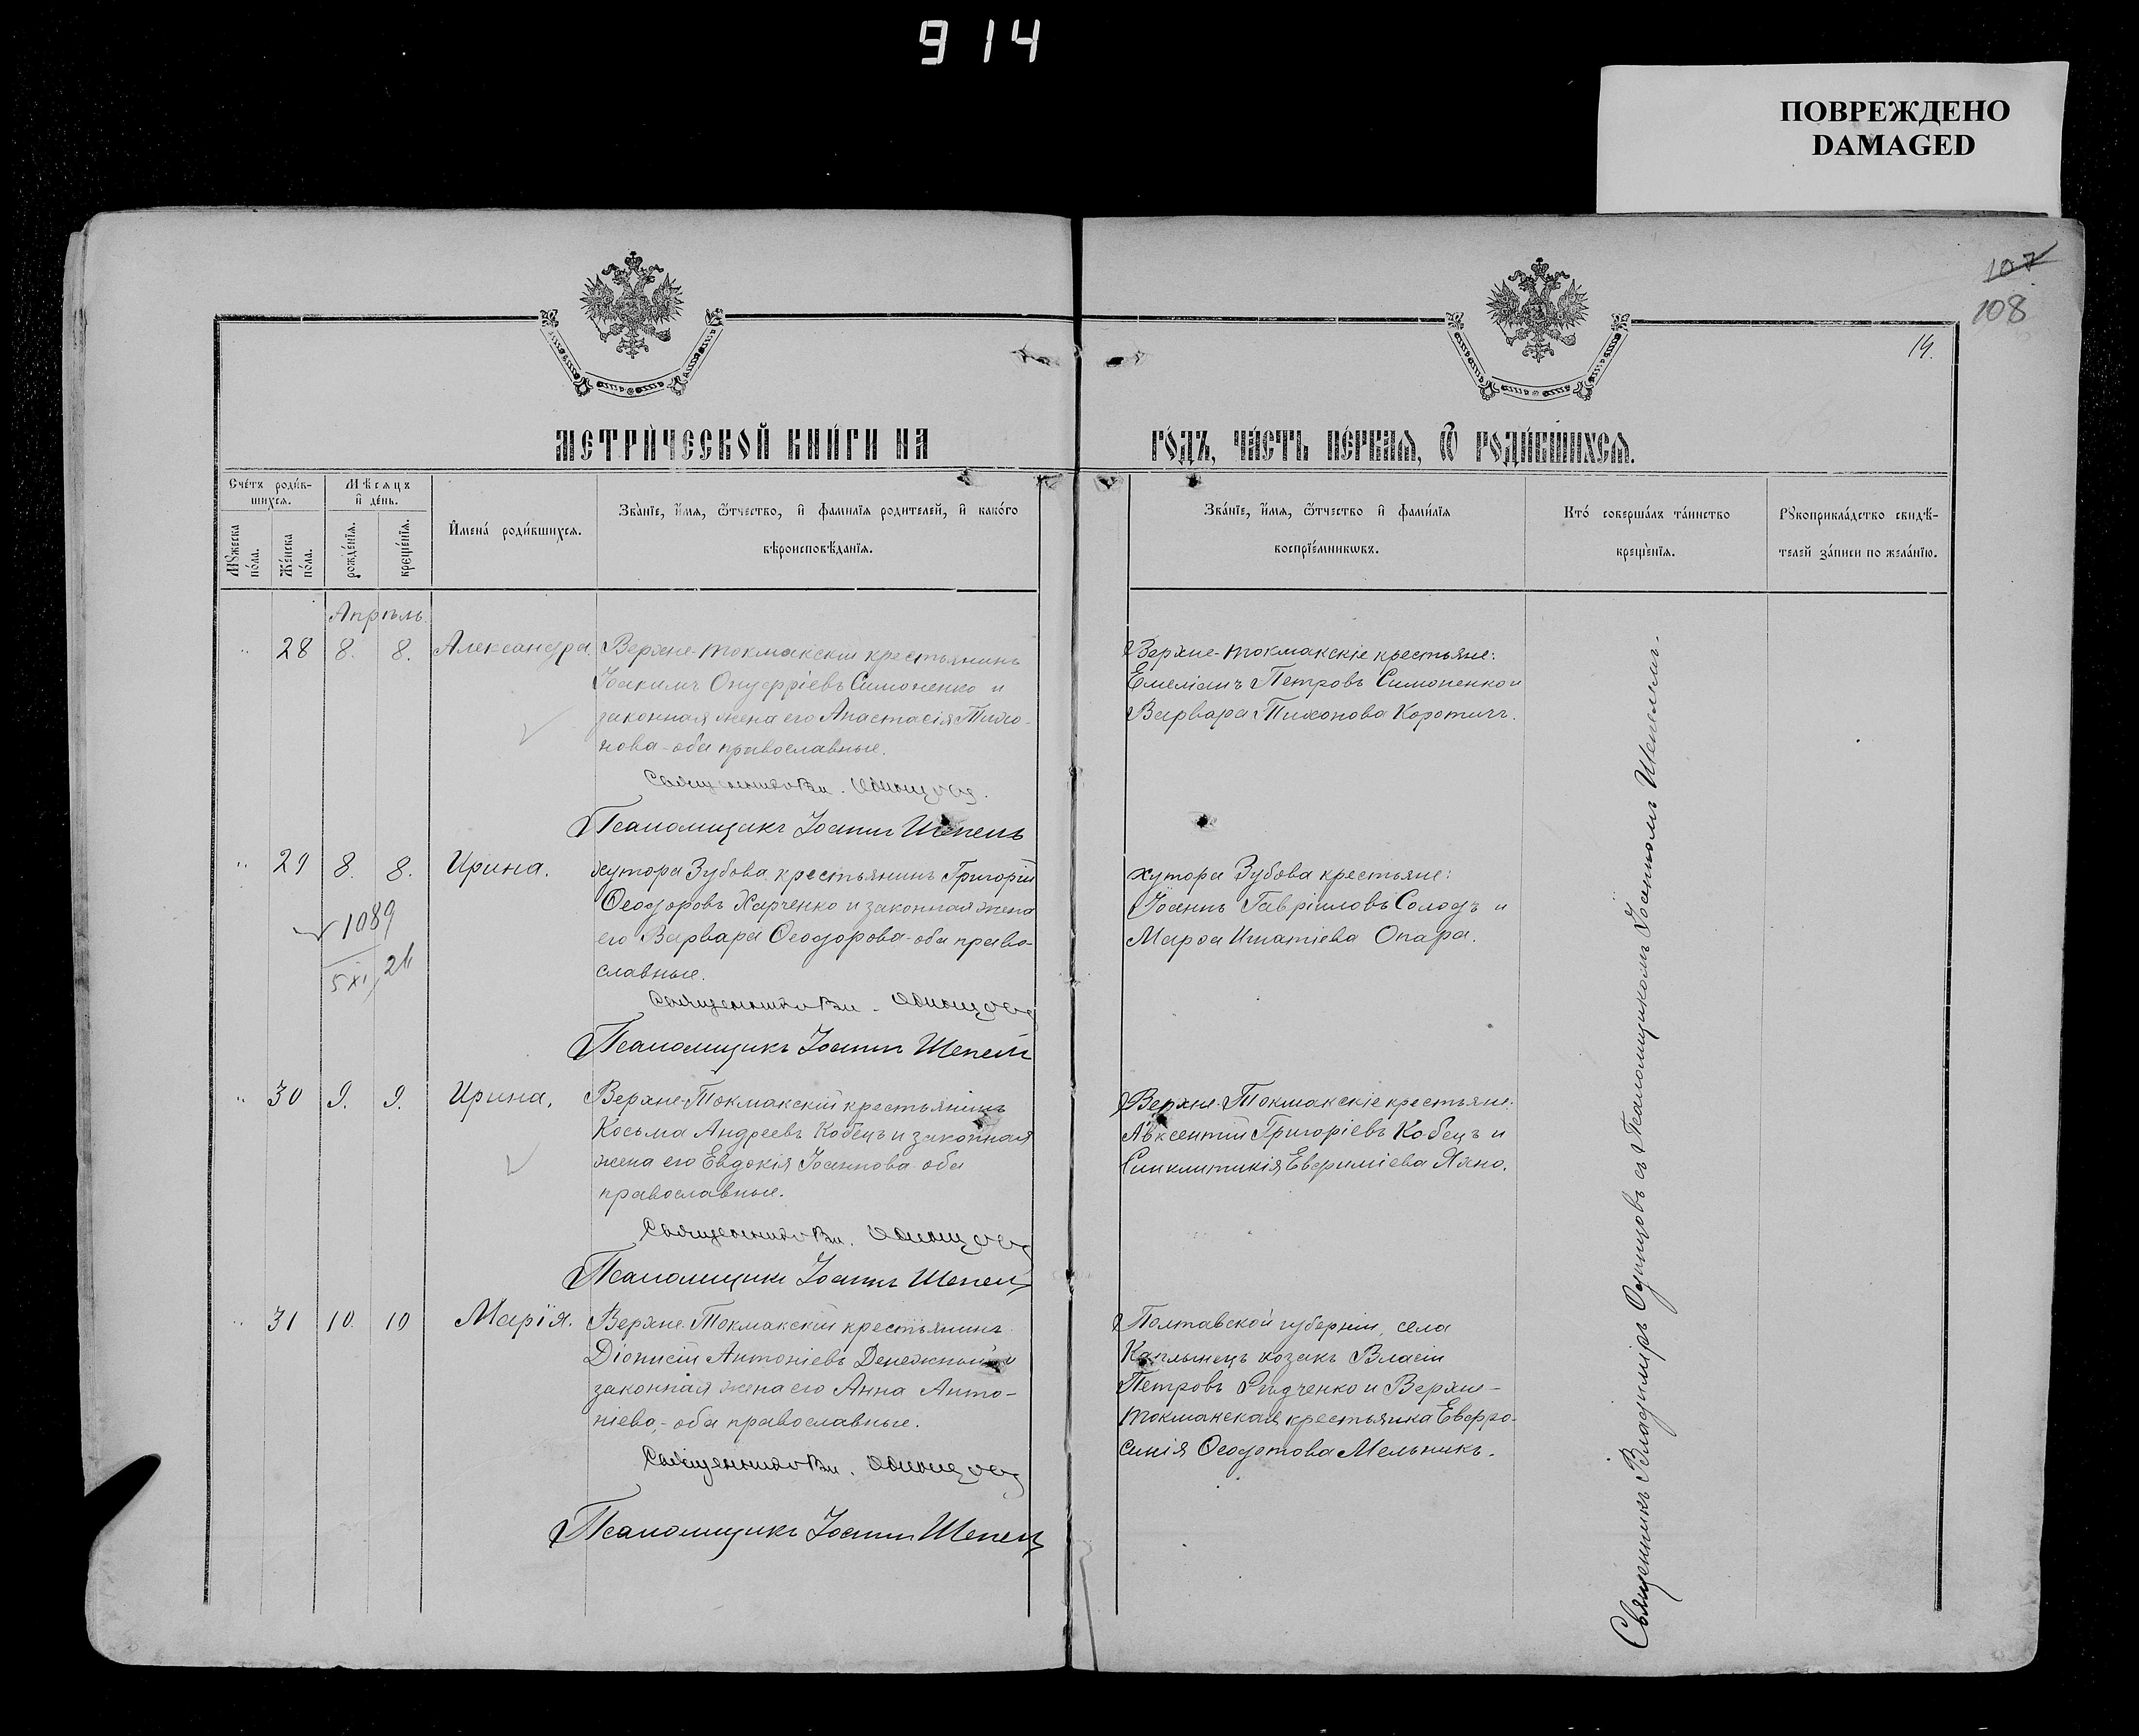 914
ПОВРЕЖДЕНО
DAMAGED
107
108
14.
МЕТРИ́ЧЕСКОЙ КНИ́ГИ НА
ГО́ДЪ, ЧА́СТЬ ПЕ́РВАЯ, Ѿ РОДИ́ВШИХСЯ.
Сче́тъ роди́в-
шихся.
Мꙋ́жеска по́ла.
Же́нска по́ла.
Мѣ́сяцъ
и҆ де́нь.
рожде́нїя.
креще́нїя.
И҆мена̀ роди́вшихся.
Зва́нїе, и҆́мя, ѻ҆́тчество, и҆ фамилїя родителей, и҆ како́го
вѣроисповѣ́данїя.
Зва́нїе, и҆́мя, ѻ҆́тчество и҆ фами́лїя
воспрїе́мникѡвъ.
Кто́ соверша́лъ та́инство
креще́нїя.
Рꙋкоприкла́дство свидѣ́-
телей за́писи по жела́нїю.
Апрѣль
„ 28 8. 8. Александра.
Верхне-токмакскій крестьянинъ
Іоакимъ Онуфріевъ Симоненко и
законная жена его Анастасія Тихо-
нова - оба православные.
Священникъ Вл. Одинцовъ.
Псаломщикъ Іоаннъ Шепель
Верхне-токмакскіе крестьяне:
Емеліанъ Петровъ Симоненко и
Варвара Тихонова Коротичъ.
„ 29 8. 8. Ирина.
1089
5 XI 26
хутора Зубова крестьянинъ Григорій
Ѳеодоровъ Харченко и законная жена
его Варвара Ѳеодорова - оба право-
славные.
Священникъ Вл. Одинцовъ
Псаломщикъ Іоаннъ Шепель
хутора Зубова крестьяне:
Іоаннъ Гавріиловъ Солодъ и
Марѳа Игнатіева Опара.
„ 30 9. 9. Ирина.
Верхне-Токмакскій крестьянинъ
Косьма Андреевъ Кобецъ и законная
жена его Евдокія Іоаннова оба
православные.
Священникъ Вл. Одинцовъ
Псаломщикъ Іоаннъ Шепель
Верхне-Токмакскіе крестьяне:
Авксентій Григоріевъ Кобецъ и
Синклитикія Евфиміева
„ 31 10. 10 Марія.
Верхне-Токмакскій крестьянинъ
Діонисій Антоніевъ Денежный и
законная жена его Анна Анто-
ніева, - оба православные.
Священникъ Вл. Одинцовъ
Псаломщикъ Іоаннъ Шепель
Полтавской губерніи, села
козакъ Власій
Петровъ и Верхне-
токмакская крестьянка Евфро-
синія Ѳеодотова Мельникъ.
Священникъ Владиміръ Одинцовъ съ Псаломщикомъ Іоанномъ Шепелемъ.